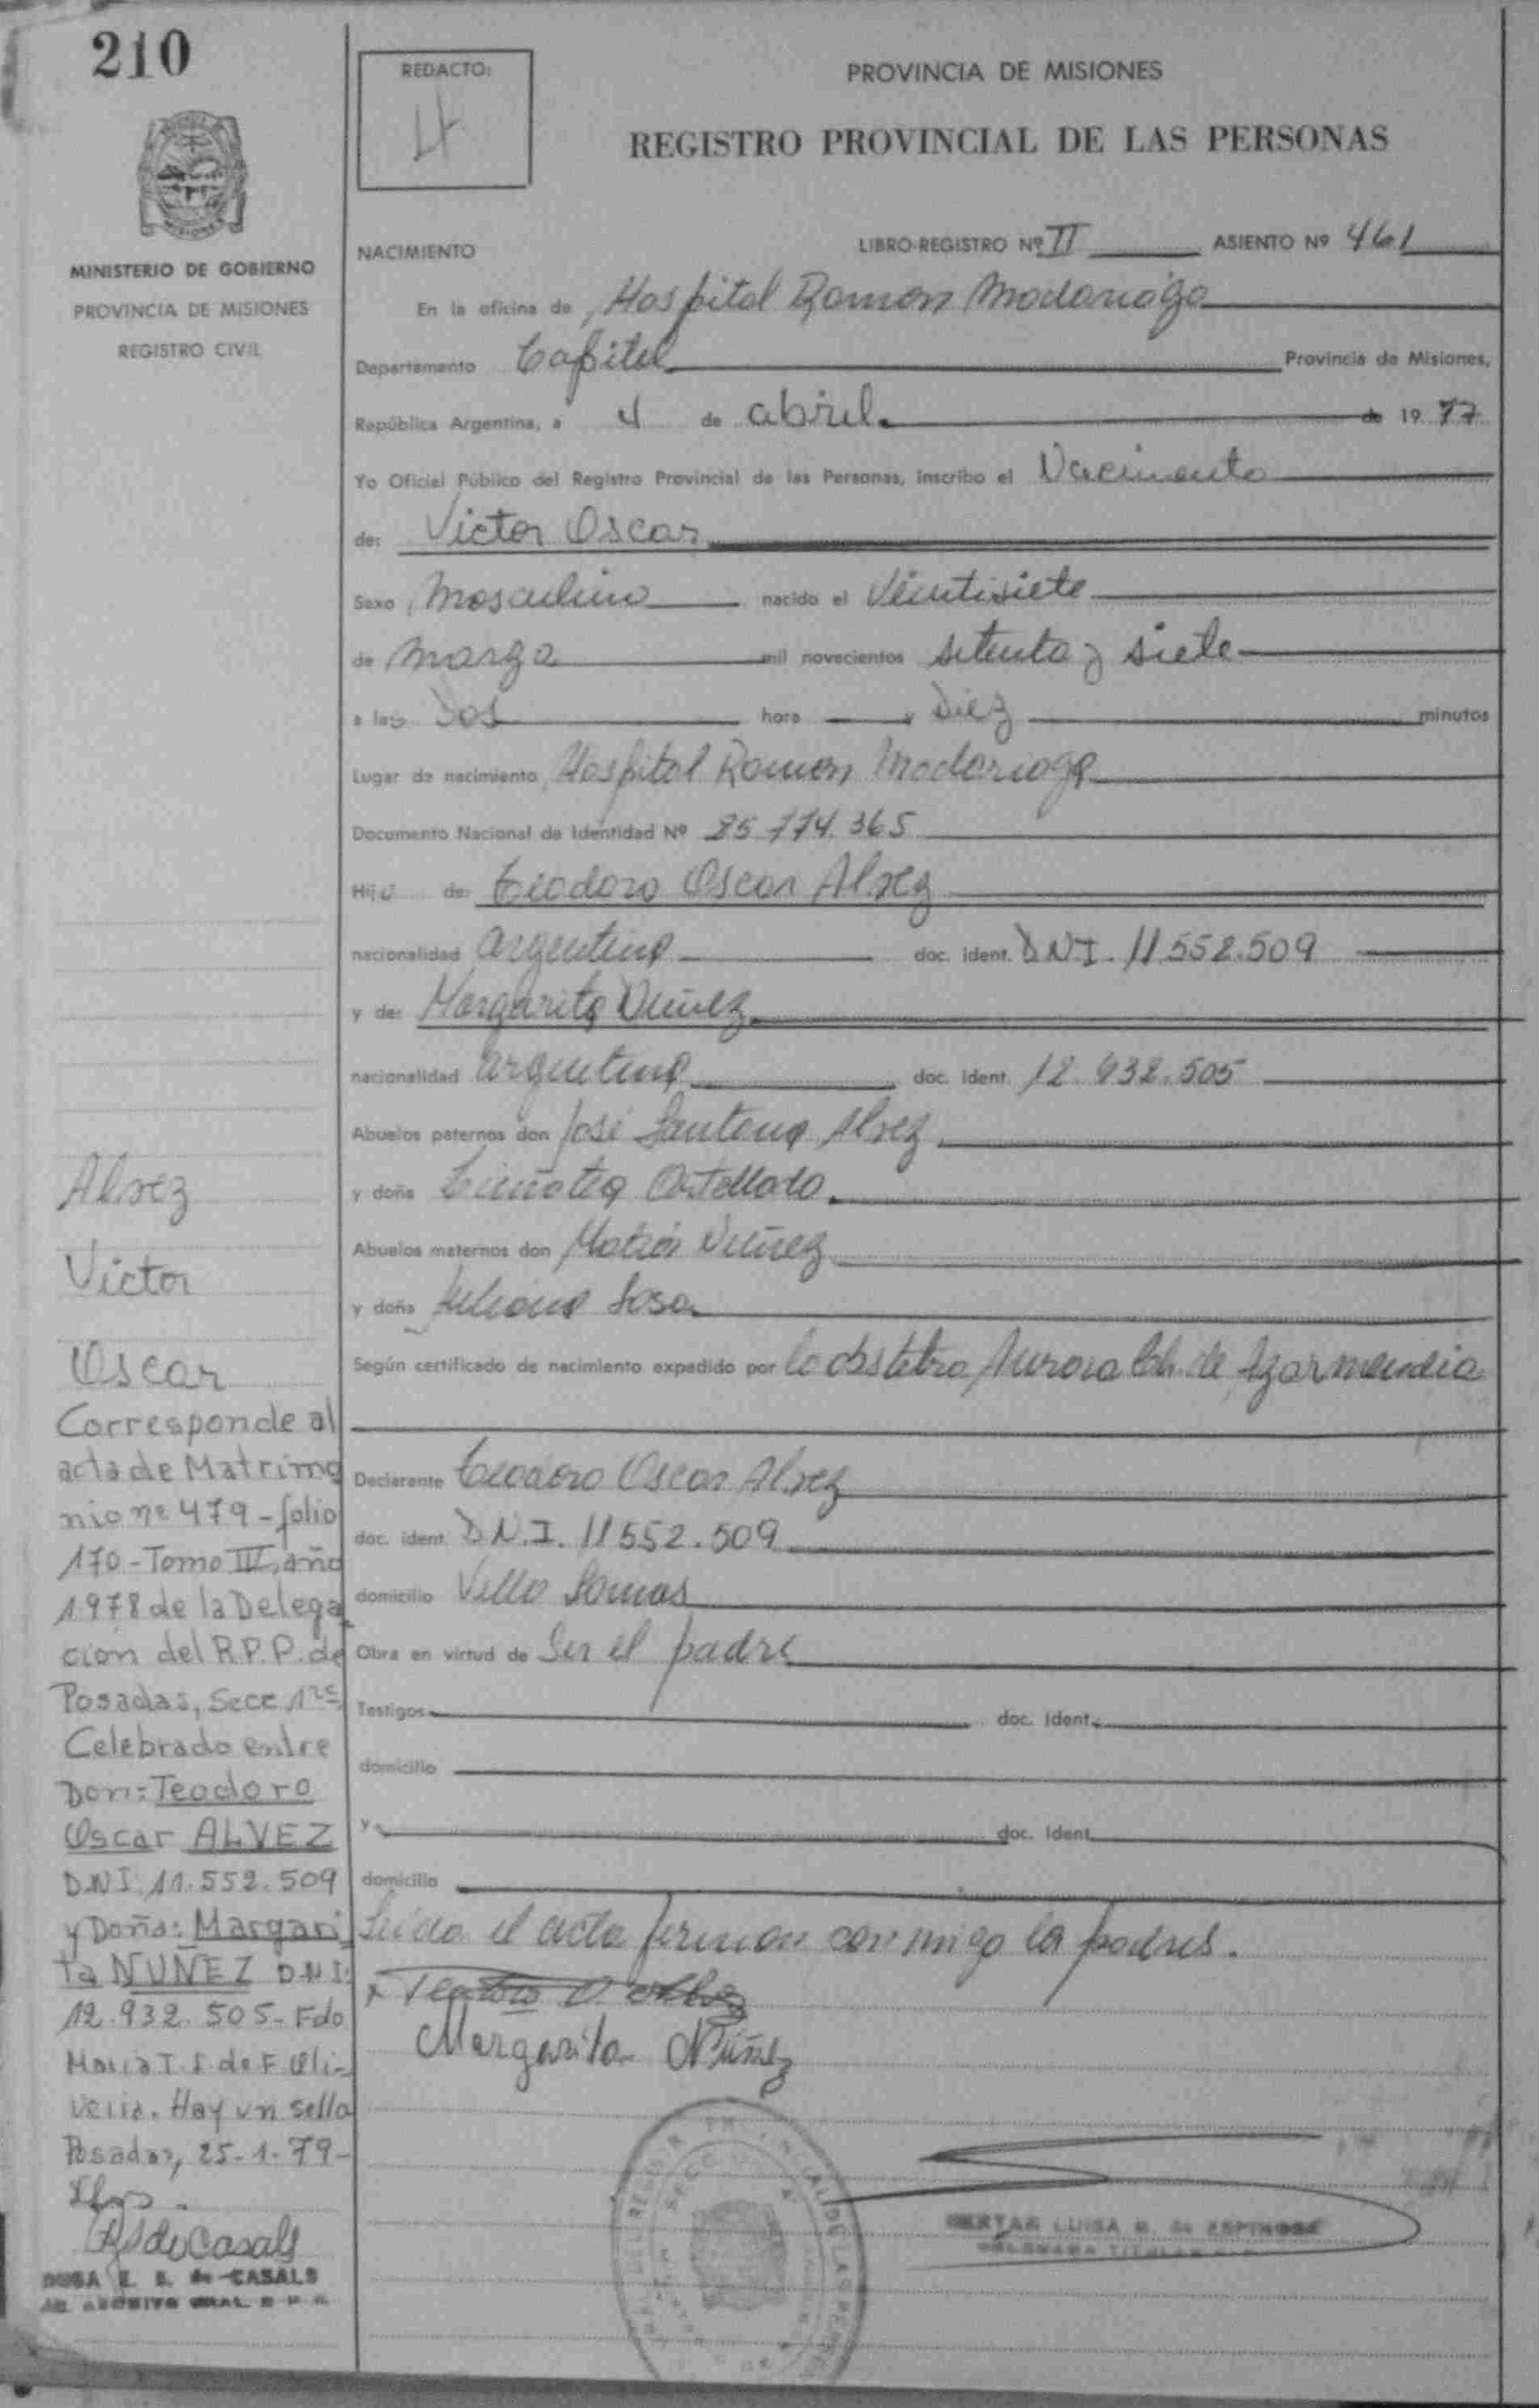 210
REDACTO:
4
PROVINCIA DE MISIONES
REGISTRO PROVINCIAL DE LAS PERSONAS
MISIONES
MINISTERIO DE GOBIERNO
PROVINCIA DE MISIONES
REGISTRO CIVIL
NACIMIENTO LIBRO-REGISTRO Nº II ASIENTO Nº 461
En la oficina de Hospital Ramon Madariaga
Departamento Capital Provincia de Misiones,
República Argentina, a 4 de abril de 1977
Yo Oficial Público del Registro Provincial de las Personas, inscribo el Nacimiento
de: Victor Oscar
Sexo Masculino nacido el Veintisiete
de marzo mil novecientos setenta y siete
a las Dos hora Diez minutos
Lugar de nacimiento Hospital Ramon Madariaga
Documento Nacional de Identidad Nº 25.774.365
Hijo de: Teodoro Oscar Alvez
nacionalidad argentina doc. ident. D.N.I. 11.552.509
y de: Margarita Nuñez
nacionalidad argentina doc. ident. 12.932.505
Abuelos paternos don José Santana Alvez
y doña Timotea
Abuelos maternos don Matias Nuñez
y doña Juliana Sosa
Según certificado de nacimiento expedido por la obstetra Aurora de
Declarante Teodoro Oscar Alvez
doc. ident. D.N.I. 11552.509
domicilio Villa Lomas
Obra en virtud de Ser el padre
Testigos doc. Ident.
domicilio
y doc. Ident.
domicilio
Leida el acta firman conmigo los padres.
Teodoro O. Alvez
Margarita Núñez
LUISA de ESPINOSA
Alvez
Victor
Oscar
Corresponde al
acta de Matrimo
nio nº 479-folio
170-Tomo III, año
1978 de la Delega
cion del R.P.P. de
Posadas, Secc 1ra
Celebrado entre
Don: Teodoro
Oscar ALVEZ
D.N.I. 11.552.509
y Doña: Margari
ta NUÑEZ D.N.I.
12.932.505-Fdo
Maria T. S. de F. Oli-
veira. Hay un sello
Posadas, 25-1-79-
de Casals
E. S. de CASALS